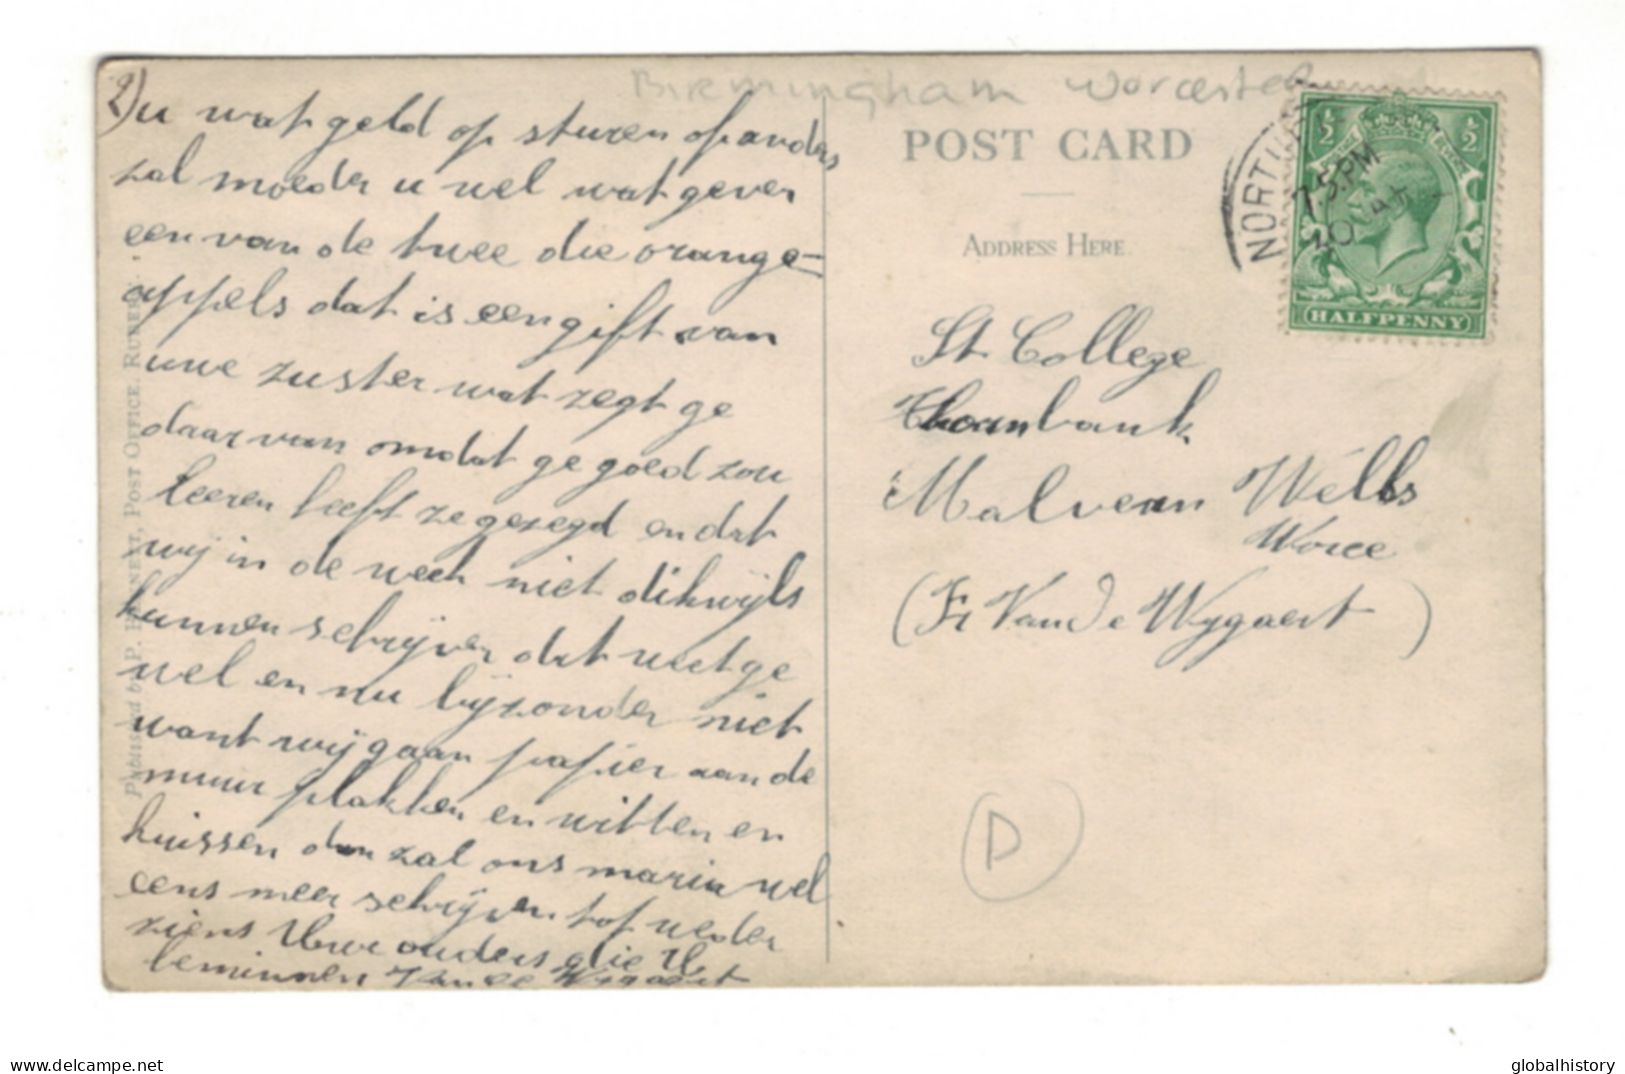 2) u wat geld op sturen of anders
zal moeder u wel wat geven
een van de twee die orange=
appels dat is een gift van
uwe zuster wat zegt ge
daarvan omdat ge goed zou
leeren heeft ze gezegd en dat
wij in de week niet dikwijls
kunnen schrijven dat weet ge
wel en nu bijzonder niet
want wij gaan papier aan de
muur plakken en witten en
kuissen dan zal ons maria wel
eens meer schrijven tot weder
ziens Uwe ouders die U
beminnen Van de Wygaert
Published by P. , POST OFFICE, RUBERY.
Birmingham Worcester
POST CARD
ADDRESS HERE
NORTHFI
7.5 PM
20
½ ½
HALFPENNY
St College
Thornbank
Malvern Wells
Worce
(Fr Van de Wygaert)
D
delcampe.net
globalhistory